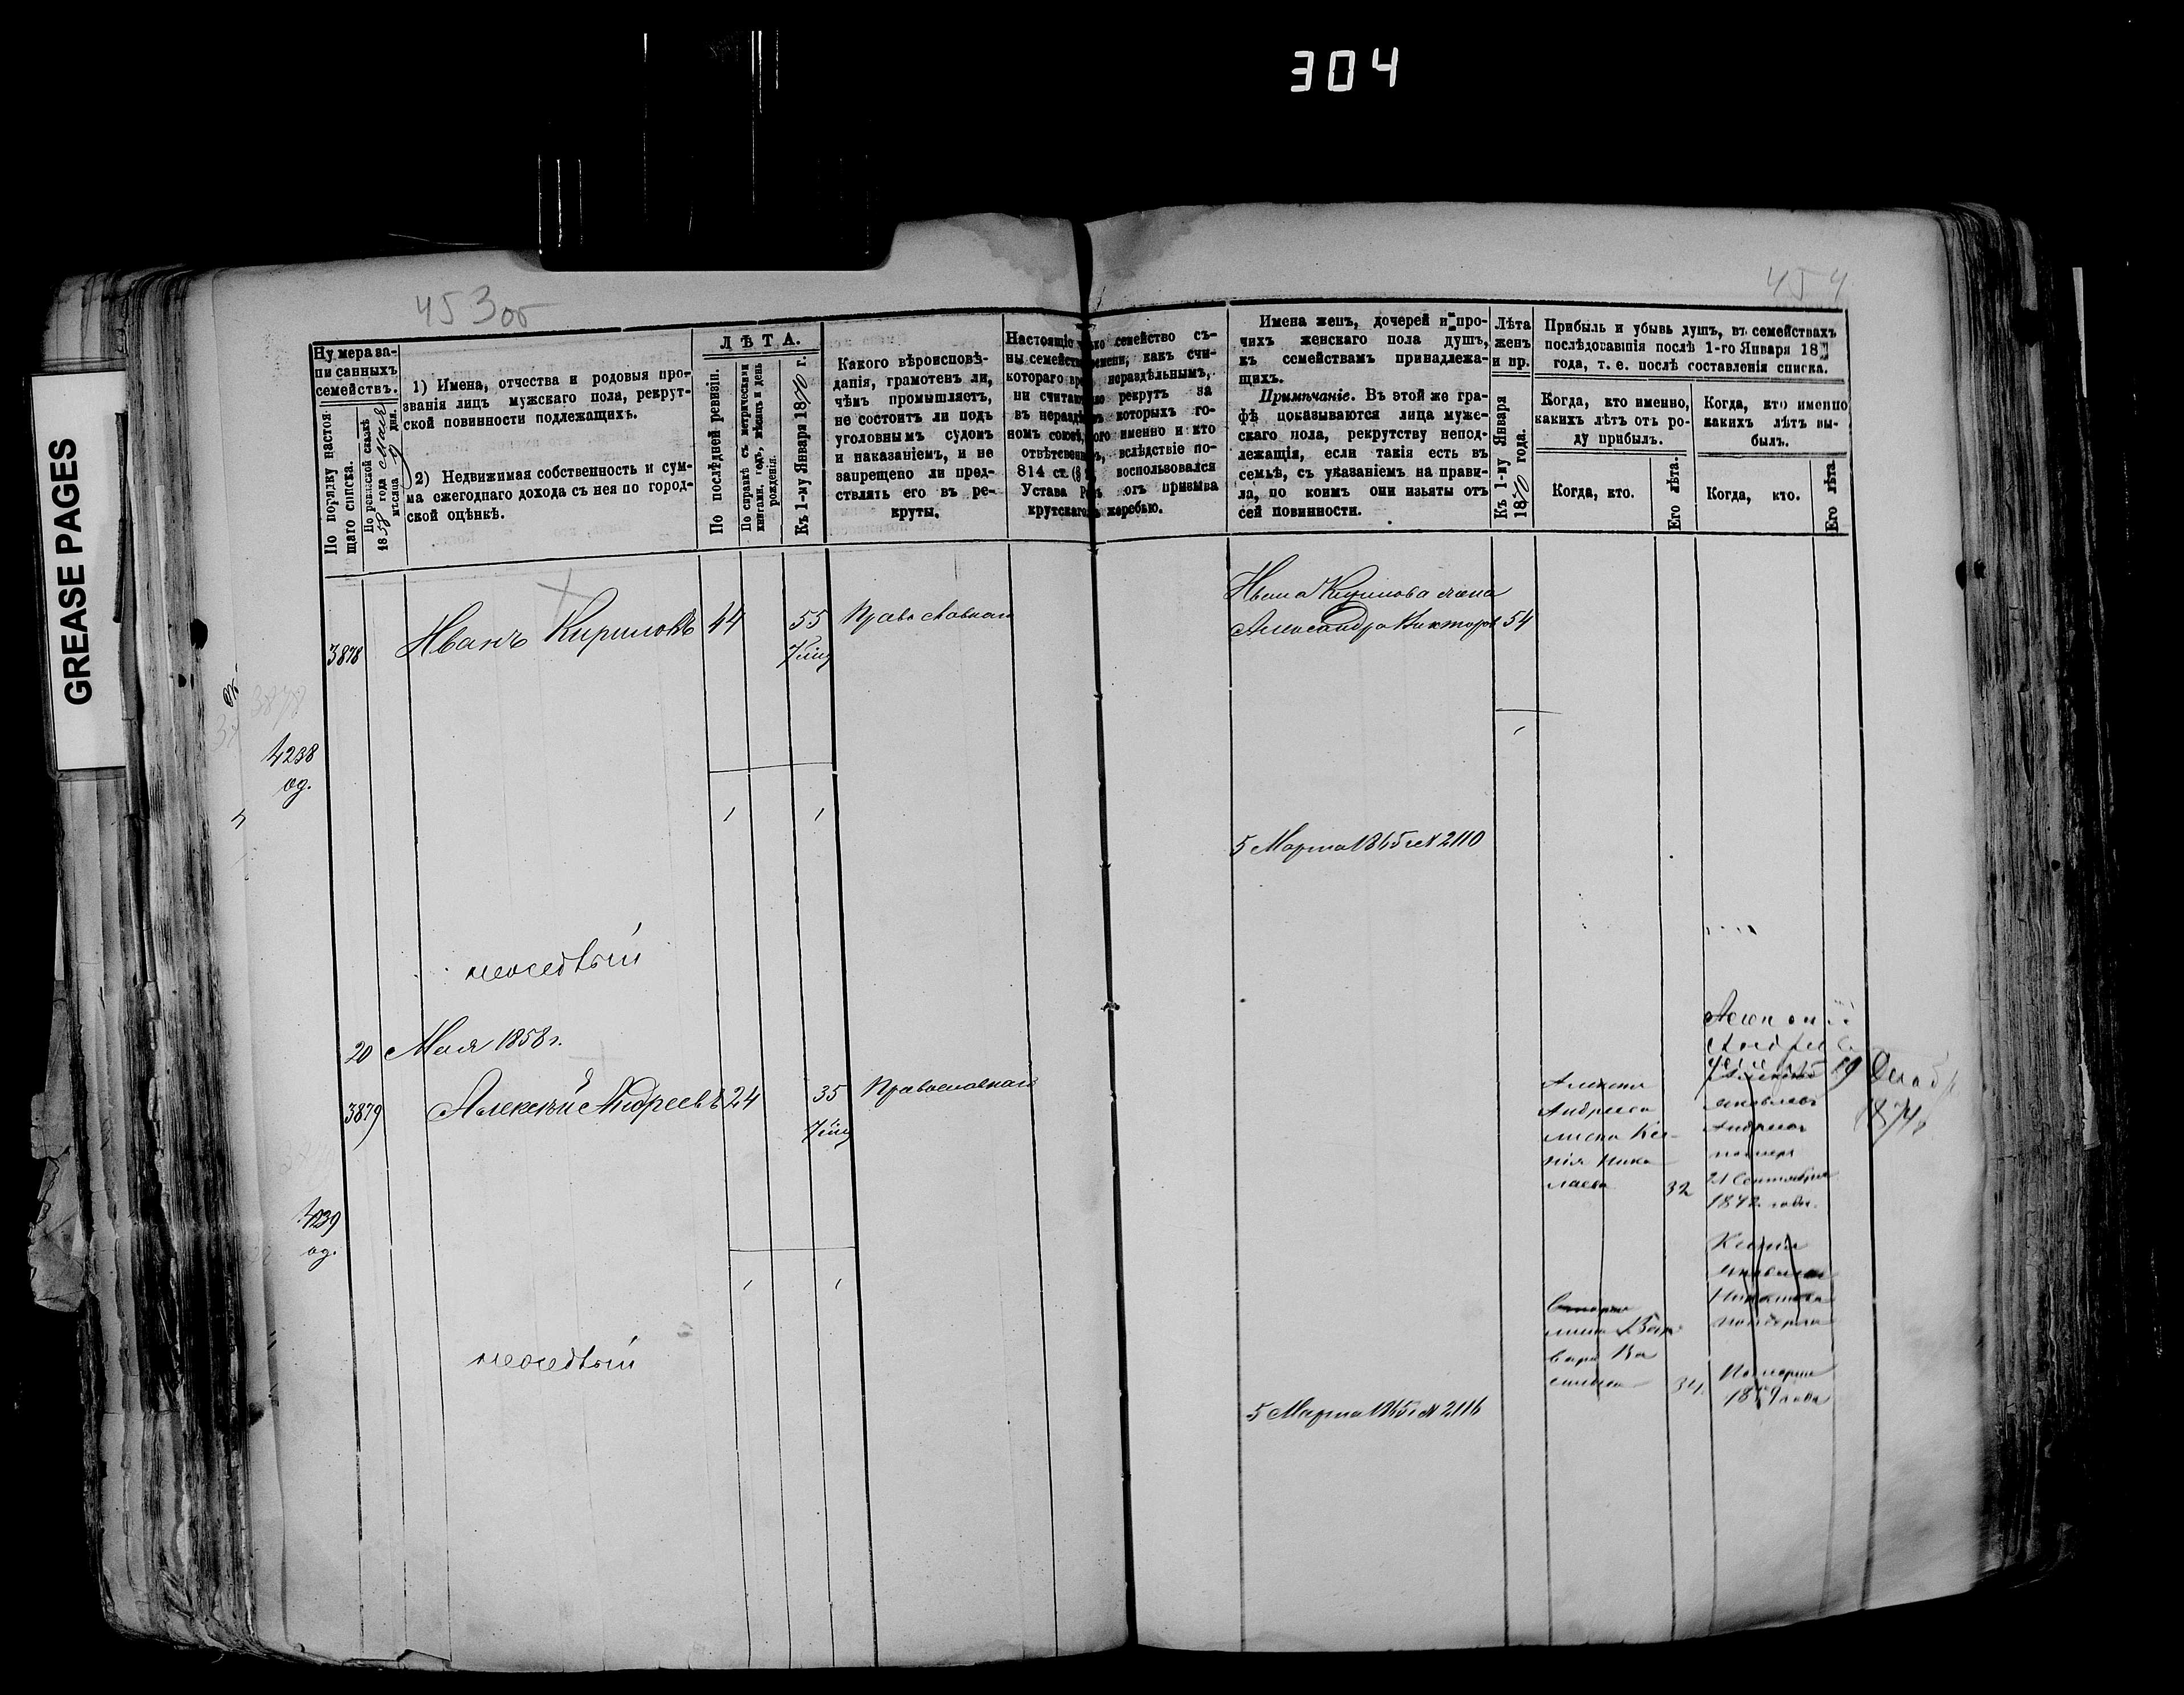 304
GREASE PAGES
453об
454
Нумера за-
писанныхъ
семействъ.
По порядку настоя-
щаго списка.
По ревизской сказкѣ
1858 года Мая
мѣсяца дня.
1) Имена, отчества и родовыя про-
званія лицъ мужскаго пола, рекрут-
ской повинности подлежащихъ.
2) Недвижимая собственность и сум-
ма ежегоднаго дохода съ нея по город-
ской оцѣнкѣ.
ЛѢТА.
По послѣдней ревизіи.
По справкѣ съ метрическими
книгами, годъ, мѣсяцъ и день
рожденія.
Къ 1-му Января 1870 г.
Какого вѣроисповѣ-
данія, грамотенъ ли,
чѣмъ промышляетъ,
не состоитъ ли подъ
уголовнымъ судомъ
и наказаніемъ, и не
запрещено ли пред-
ствлять его въ ре-
круты.
Настоящіе
ны семейств
котораго вре
ни считаю
въ нераздѣ
номъ союзѣ,
отвѣтствен
814 ст. (8
Устава Р
крутскаго
семейство съ-
какъ счи-
нераздѣльнымъ,
рекрутъ за
которыхъ го-
именно и кто
вслѣдствіе по-
воспользовался
отъ призыва
жеребью.
Имена женъ, дочерей и про-
чихъ женскаго пола душъ,
къ семействамъ принадлежа-
щихъ.
Примѣчаніе. Въ этой же гра-
фѣ показываются лица муже-
скаго пола, рекрутству непод-
лежащія, если такія есть въ
семьѣ, съ указаніемъ на прави-
ла, по коимъ они изъяты отъ
сей повинности.
Лѣта
женъ
и пр.
Къ 1-му Января
1870 года.
Прибыль и убыль душъ, въ семействахъ
послѣдовавшія послѣ 1-го Января 18
года, т. е. послѣ составленія списка.
Когда, кто именно,
какихъ лѣтъ отъ ро-
ду прибылъ.
Когда, кто именно
какихъ лѣтъ вы-
былъ.
Когда, кто.
Его лѣта.
Когда, кто.
Его лѣта
3878
Иванъ Кириловъ
44
55
Православнаго
Ивана Кирилова жена
Александра Викторов 54
3878
4238
од.
5 Марта 1865 г № 2110
неоседлый
20 Мая 1858 г.
3879
Алексѣй Андреевъ 24
35
Православнаго
Алексѣя
Андреева
жена Ксе-
нія Нико
лаева 32
Яковлевъ
Андреевъ
померъ
21 Сентября
29 Декабр
1874
4239
од.
Ксенія
померла
жена Вар
вара Ва
сильева 34
неоседлый
5 Марта 1865 г № 2116